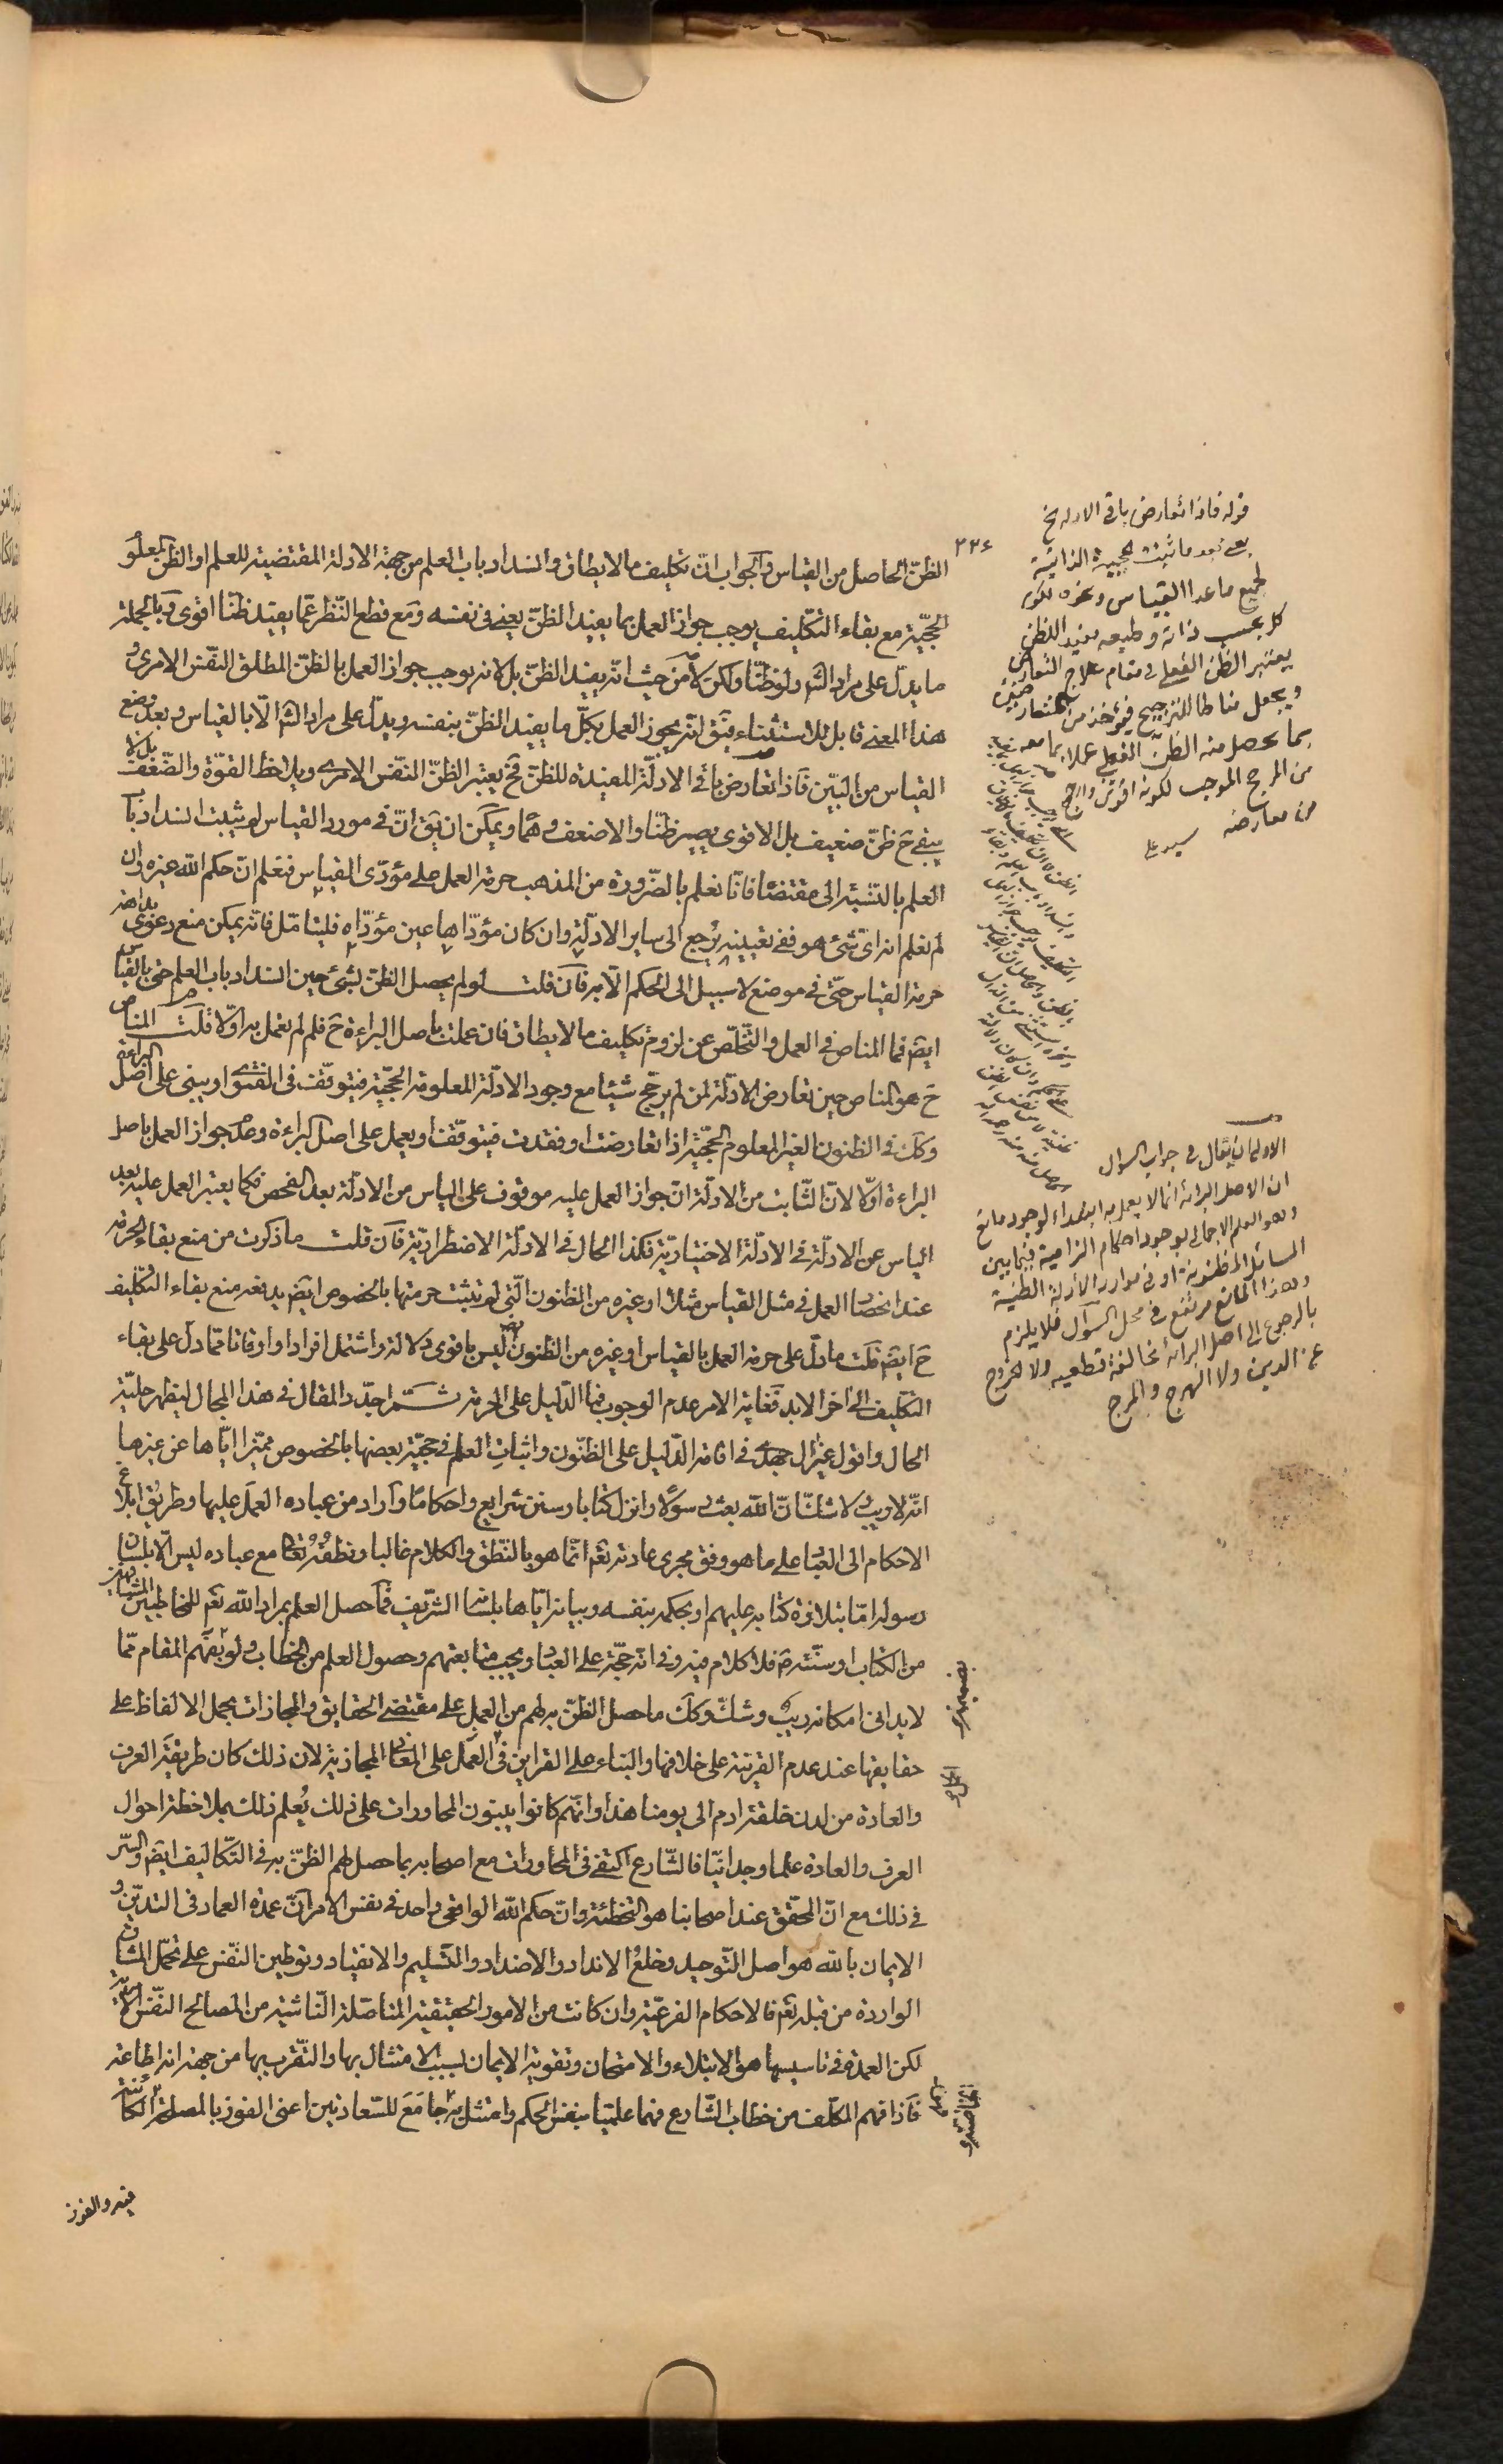 ٢٢٤
الظنّ الحاصل من القياس والجواب انّ تكليف ما لا يطاق وانسداد باب العلم من جهة الادلة المقتضية للعلم او الظن المعلو
الحجيّة مع بقاء التكليف يوجب جواز العمل بما يفيد الظنّ يعنى فى نفسه ومع قطع النّظر عمّا يفيد ظنّا اقوى وبالجملة
ما يدلّ على مراد الشّ ولو ظنّا ولكن لا من حيث انّه يفيد الظنّ بل لانه يوجب جواز العمل بالظنّ المطلق النّفس الامرى و
هذا المعنى قابل للاستثناء فيق انّه يجوز العمل بكلّ ما يفيد الظنّ بنفسه ويدلّ على مراد الشّ الّا بالقياس وبعد وضع
القياس من البيّن فاذا تعارض باقى الادلّة المفيدة للظنّ فح يعتبر الظنّ النّفس الامرى ويلاحظ القوّة والضّعف بل لا
يبقى ح ظنّ ضعيف بل الاقوى يصير ظنّا والاضعف وهما ويمكن ان يق انّ فى مورد القياس لم يثبت انسداد باب
العلم بالنّسبة الى مقتضاه فانّا نعلم بالضّرورة من المذهب حرمة العمل على مؤدّى القياس فنعلم انّ حكم الله غيره وان
لم نعلم انه اىّ شئ هو ففى تعيينه يُرجع الى ساير الادلّة وان كان مؤدّاها عين مؤدّاه فليتامّل فانّه يمكن منع دعوى بداهة
حرمة القياس حتّى فى موضع لا سبيل الى الحكم الّا به فان قلت لو لم يحصل الظنّ بشئ حين انسداد باب العلم حتى بالقياس
ايضا فما المناص فى العمل والتّخلّص عن لزوم تكليف ما لا يطاق فان عملت باصل البراءة ح فلم لم تعمل به اوّلا قلت المناص
ح هو المناص حين تعارض الادلّة لمن لم يرجّح شيئا مع وجود الادلّة المعلومة الحجيّة فيتوقّف فى الفتوى او يبنى على اصل البراءة
وكك فى الظنون الغير المعلوم الحجيّة اذا تعارضت او فقدت فيتوقّف او يعمل على اصل البراءة وعدم جواز العمل باصل
البراءة اوّلا لانّ الثّابت من الادلّة انّ جواز العمل عليه موقوف على الياس من الادلّة بعد الفحص فكما يعتبر العمل عليه بعد
الياس عن الادلّة فى الادلّة الاختياريّة فكذا الحال فى الادلّة الاضطراريّة فان قلت ما ذكرت من منع بقاء الحرمة
عند انحصار العمل فى مثل القياس مثلا او غيره من الظنون الّتى لم تثبت حرمتها بالخصوص ايض يدفعه منع بقاء التّكليف
ح ايض قلت ما دلّ على حرمة العمل بالقياس او غيره من الظنون ليس باقوى دلالة واشتمل افرادا واوقاتا ممّا دلّ على بقاء
التكليف الى اخر الابد فغاية الامر عدم الوجوب فما الدّليل على الحرمة ثم اجدّد المقال فى هذا المجال ليظهر جليّة
الحال واقول غير ال جهدى فى اقامة الدّليل على الظنّون واثبات العلم فى حجيّة بعضها بالخصوص مميّزا ايّاها عن غيرها
انّه لا ريب ولا شك انّ الله بعث رسولا وانزل كتابا وسنن شرايع واحكاما واراد من عباده العمل عليها وطريق ابلاغ
الاحكام الى العباد على ما هو وفق مجرى عادته تعم انّما هو بالنّطق والكلام غالبا ونطقه تعالى مع عباده ليس الّا بلسان
رسوله امّا بتلاوة كتابه عليهم او بحكمه بنفسه وبيانه ايّاها بلسانه الشّريف فما حصل العلم بمراد الله تعم للمخاطبين المشافهين
من الكتاب او سنّته ص فلا كلام فيه وفى انّه حجّة على العباد ويجب متابعتهم وحصول العلم من الخطاب ولو بضمّ المقام ممّا
لا يدانى امكانه ريب وشكّ وكك ما حصل الظنّ به لهم من العمل على مقتضى الحقايق والمجازات بحمل الالفاظ على
حقايقها عند عدم القرينة على خلافها والبناء على القراين فى العمل على المعانى المجازية لان ذلك كان طريقة العرف
والعادة من لدن خلقة ادم الى يومنا هذا وانّهم كانوا يبنون المحاورات على ذلك يُعلم ذلك بملاحظة احوال
العرف والعادة علما وجدانيّا فالشّارع اكتفى فى المحاورات مع اصحابه بما حصل لهم الظنّ به فى التّكاليف ايض والسّر
فى ذلك مع انّ المحقّق عند اصحابنا هو التخطئة وانّ حكم الله الواقعى واحد فى نفس الامر انّ عمدة العماد فى التديّن و
الايمان بالله هو اصل التّوحيد وخلع الانداد والاضداد والتّسليم والانقياد وتوطين النّفس على تحمّل المشاق
الواردة من قبله تعم فالاحكام الفرعيّة وان كانت من الامور الحقيقية المتاصّلة النّاشية من المصالح النّفس الامريّة
لكن العمدة فى تاسيسها هو الابتلاء والامتحان وتقوية الايمان بسبب الامتثال بها والتّقرب بها من جهة انه اطاعة
فاذا فهم المكلّف من خطاب الشّارع فهما علميّا بنفس الحكم وامتثل به فاجامع للسّعادتين اعنى الفوز بالمصلحة الكائنة
فيه والفوز
قوله فاذا تعارض باقى الادلة الخ
يعنى بعد ما ثبت الحجية الذاتية
لجميع ما عدا القياس ونحوه لكون
كل بحسب ذاته وطبعه مفيد الظن
يعتبر الظن الفعلى فى مقام علاج التعارض
ويجعل مناطا للترجيح فيؤخذ من المتعارضين
بما يحصل منه الظنّ الفعلى عملا بما معه
من المرجح الموجب لكونه اقوى وارجح
من معارضه سيد على
الاولى ان يقال فى جواب السوال
ان الاصل البرائة انما لا يعمل به ابتداء لوجود مانع
وهو العلم الاجمالى بوجود احكام الزامية فيما بين
المسائل المظنونة او فى موارد الادلة الظنية
وهذا المانع مرتفع فى محل السوال فلا يلزم
بالرجوع الى اصل البرائة مخالفة قطعية ولا الخروج
عن الدين ولا الهرج والمرج